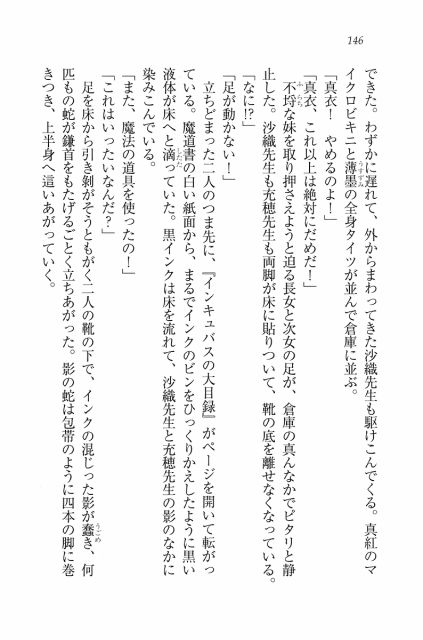 146
できた。わずかに遅れて、外からまわってきた沙織先生も駆けこんでくる。真紅のマ
イクロビキニと薄墨の全身タイツが並んで倉庫に並ぶ。
「真衣！　やめるのよ！」
「真衣、これ以上は絶対にだめだ！」
不埒な妹を取り押さえようと迫る長女と次女の足が、倉庫の真んなかでピタリと静
止した。沙織先生も充穂先生も両脚が床に貼りついて、靴の底を離せなくなっている。
「なに!?」
「足が動かない！」
立ちどまった二人のつま先に、『インキュバスの大目録』がページを開いて転がっ
ている。魔道書の白い紙面から、まるでインクのビンをひっくりかえしたように黒い
液体が床へと滴っていた。黒インクは床を流れて、沙織先生と充穂先生の影のなかに
染みこんでいる。
「また、魔法の道具を使ったの！」
「これはいったいなんだ？」
足を床から引き剝がそうともがく二人の靴の下で、インクの混じった影が蠢き、何
匹もの蛇が鎌首をもたげるごとく立ちあがった。影の蛇は包帯のように四本の脚に巻
きつき、上半身へ這いあがっていく。